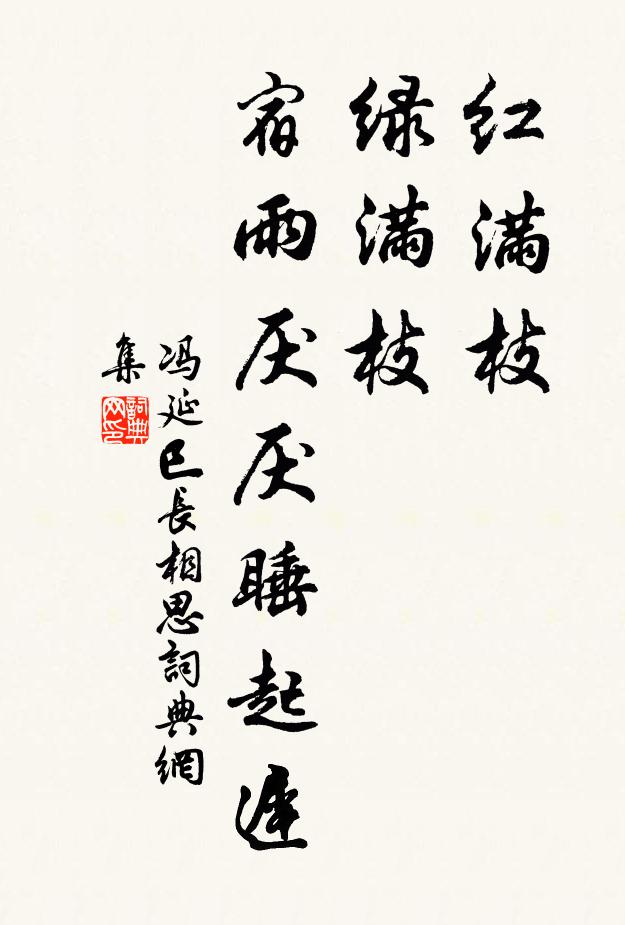 红满枝
绿满枝
宿雨厌厌睡起遲
冯延巳長相思詞典網
集
詞典
网印